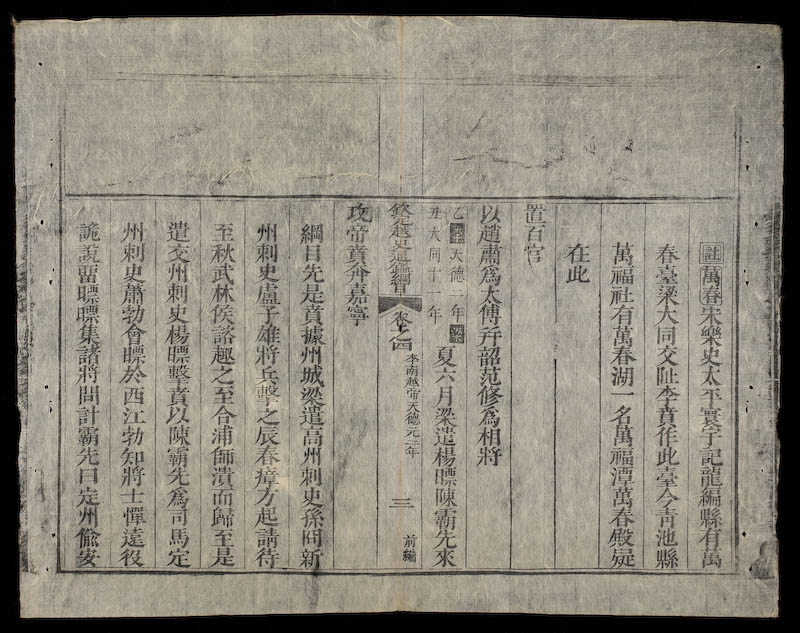 註萬春宋樂史太平寰宇記龍編縣有萬
春臺梁大同交阯李賁作此臺今青池縣
萬福社有萬春湖一名萬福潭萬春殿疑
在此
置百官
以趙肅爲太傅并韶范修爲相將
乙丑李天德二年梁大同十一年夏六月梁遣楊㬓陳霸先來
欽定越史通鑑綱目 卷之四 李南越帝天德元二年 三 前編
攻帝賁奔嘉寧
綱目先是賁據州城梁遣高州刺史孫冏新
州刺史盧子雄將兵擊之辰春瘴方起請待
至秋武林侯諮趣之至合浦師潰而歸至是
遣交州刺史楊㬓擊賁以陳霸先爲司馬定
州刺史蕭勃會㬓於西江勃知將士憚遠役
詭說畱㬓㬓集諸將問計霸先曰定州偸安